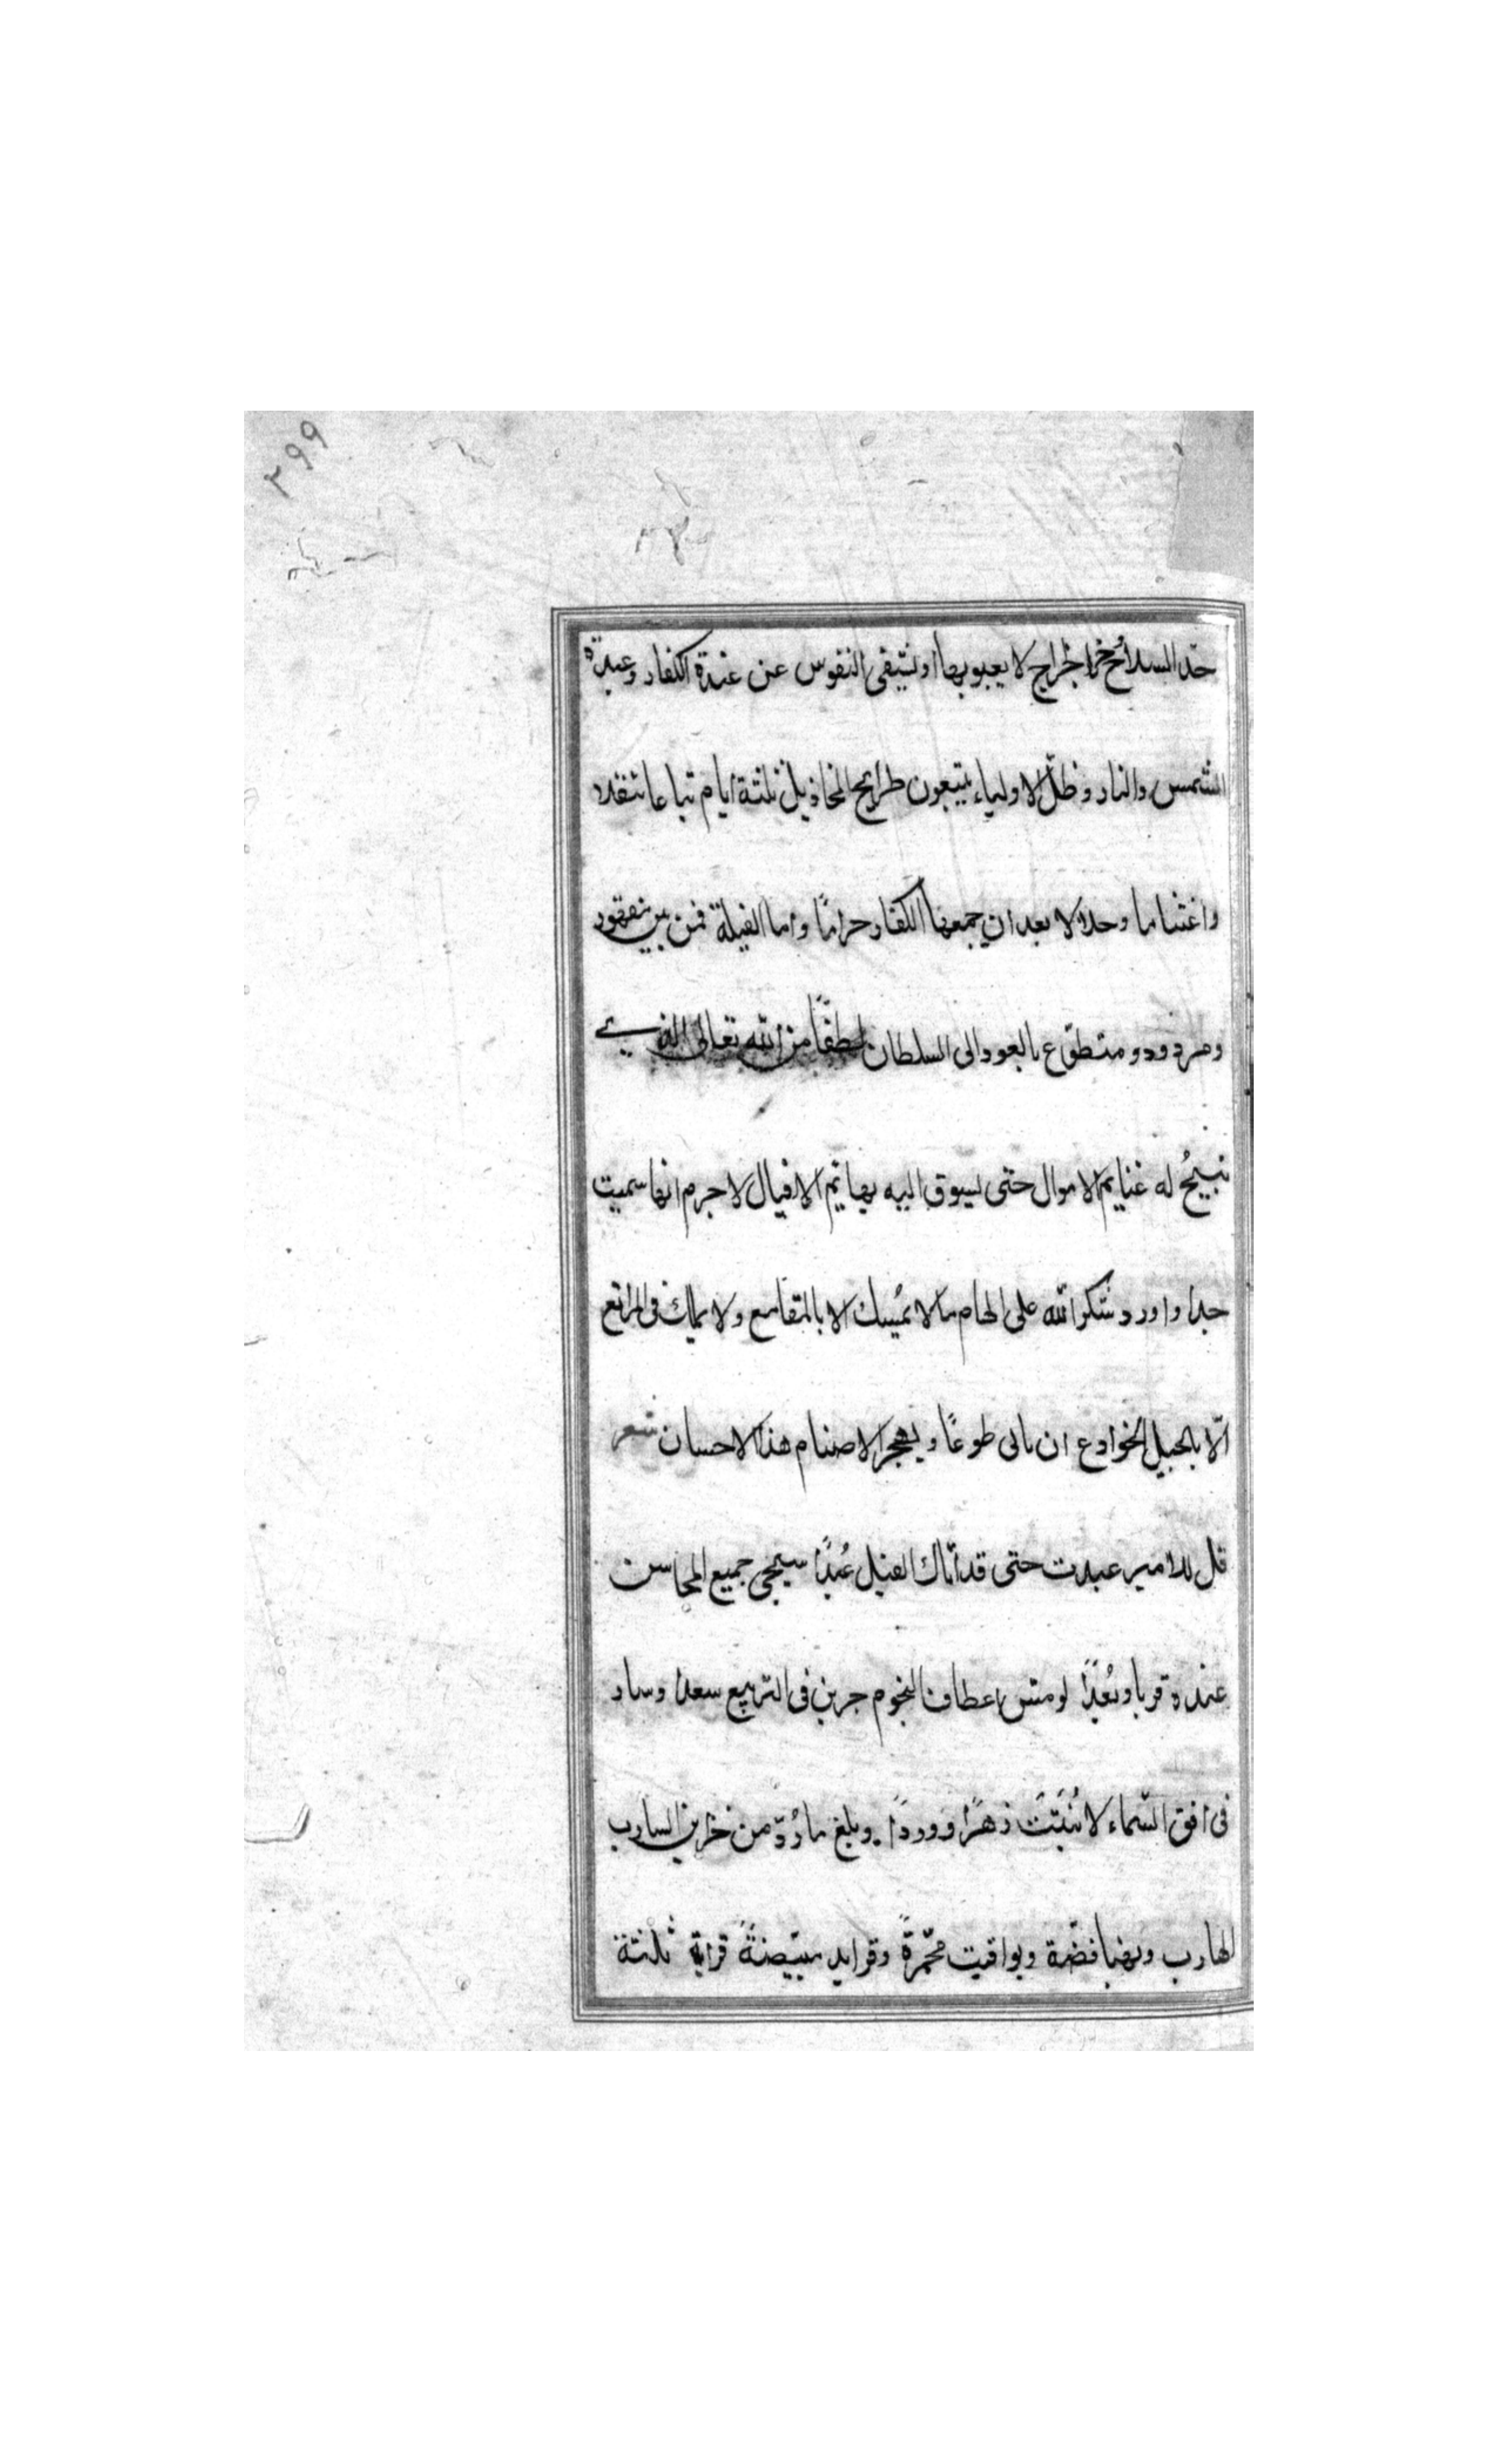 ٢٩٩
حد السلائح خراخراج لا يعبو بها او نستبقى النفوس عن عندة الكفار وعبدة
الشمس والنار وظلّ الاولياء يتبعون طرايح المخاذيل ثلثة ايام تباعا تنفلا
واغتناما وحلالا بعد ان جمعها الكفار حراما واما الفيلة فمن بين مقهور
ومردود ومتطوّع بالعود الى السلطان لطفًا من الله تعالى الذي
يبيحُ له غنايم الاموال حتى يسوق اليه بهايم الافيال لا جرم انها سميت
خدا واورد شكر الله على الهام ما لا يُمسك الا بالمقامع ولا يملك فى المراتع
الّا بالحبيل الخوادع ان ياتى طوعًا ويهجر الاصنام هذا الاحسان شعر
قل للامير عبدت حتى قد اتاك الفيل عُبدًا سبحى جميع المحاسن
عنده قربا وبُعدًا لو مسّ اعطاف النجوم جرين فى التربيع سعدا وسار
فى افق السّماء لانُبتت زهرًا ووردًا. وبلغ ما رُدّ من خزاين السارب
الهارب ونهبا فضّة ويواقيت محّمرةً وفرايد مبيّضةً قرابة ثلثة